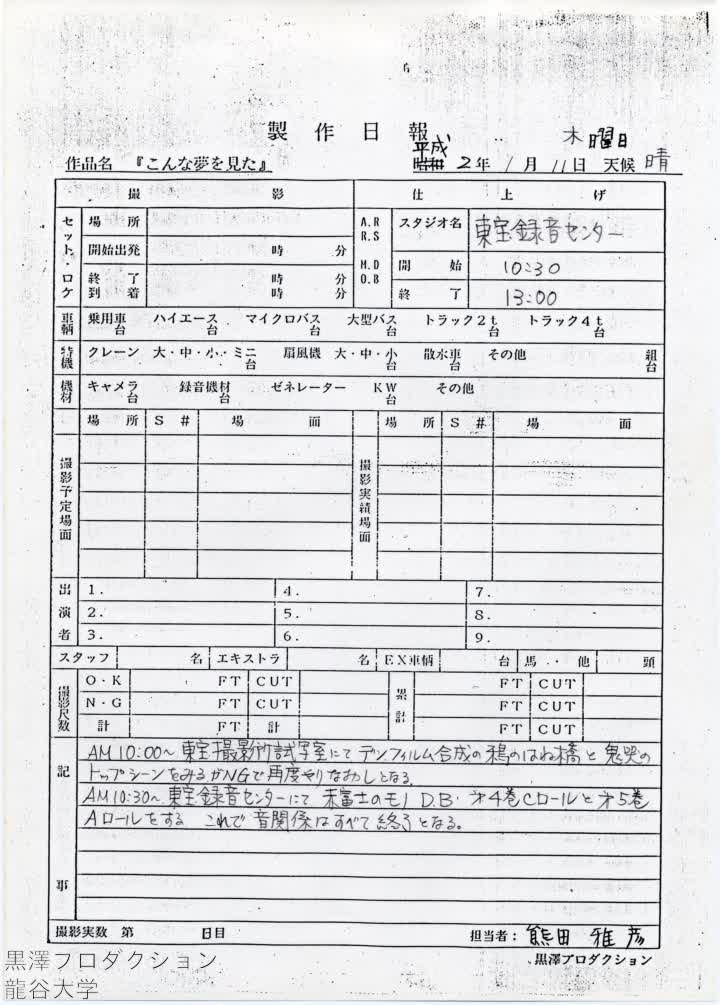 6
製作日報
木曜日
作品名 『こんな夢を見た』 平成 昭和 2年 1月 11日 天候 晴
撮 影 仕 上 げ
セット、ロケ 場所 A.R R.S スタジオ名 東宝録音センター
開始出発 時 分 M.D O.B 開始 10:30
終了到着 時 分 終了 13:00
車輌 乗用車 台 ハイエース 台 マイクロバス 台 大型バス 台 トラック2t 台 トラック4t 台
特機 クレーン 大・中・小・ミニ 台 扇風機 大・中・小 台 散水車 台 その他 組 台
機材 キャメラ 台 録音機材 ゼネレーター KW 台 その他
撮影予定場面 場所 S# 場面 撮影実績場面 場所 S# 場面
出演者 1. 4. 7.
2. 5. 8.
3. 6. 9.
スタッフ 名 エキストラ 名 EX車輌 台 馬・他 頭
撮影尺数 O・K FT CUT 累計 FT CUT
N・G FT CUT FT CUT
計 FT 計 FT CUT
記事
AM10:00~ 東宝撮影所試写室にて デンフィルム合成の鴉のはね橋と鬼哭の
トップシーンをみるがNGで再度やりなおしとなる。
AM10:30~ 東宝録音センターにて 赤富士のモノ D.B. 才4巻Cロールと才5巻
Aロールをする これで音関係はすべて終了となる。
撮影実数 第 日目 担当者: 熊田 雅彦
黒澤プロダクション
黒澤プロダクション
龍谷大学